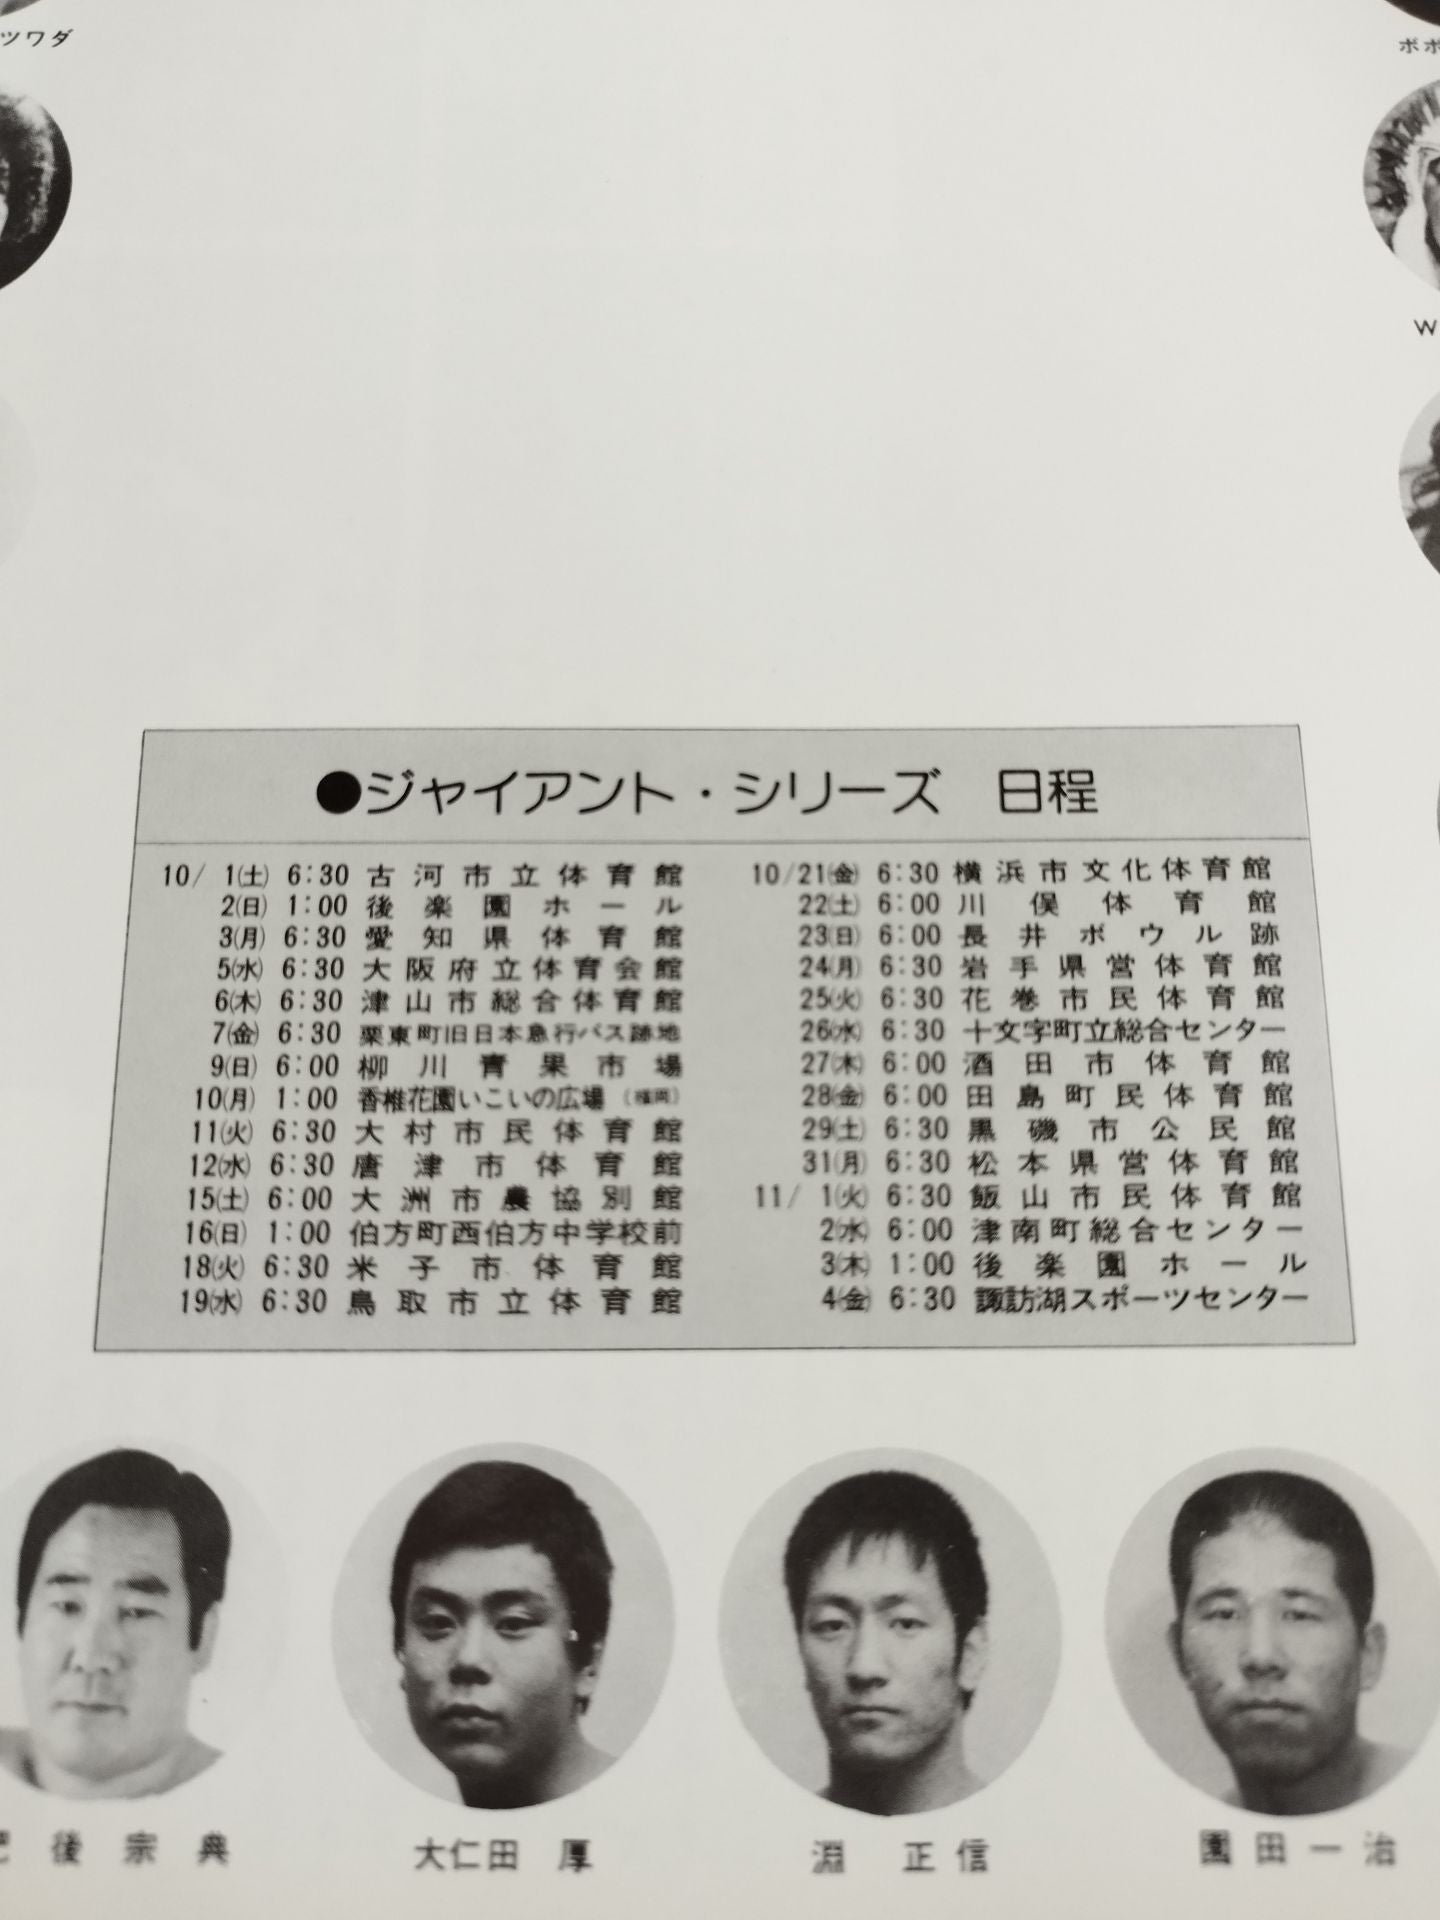 ツワダ
ポポ
W
●ジャイアント・シリーズ 日程
10/ 1(土) 6:30 古河市立体育館
2(日) 1:00 後楽園ホール
3(月) 6:30 愛知県体育館
5(水) 6:30 大阪府立体育会館
6(木) 6:30 津山市総合体育館
7(金) 6:30 栗東町旧日本急行バス跡地
9(日) 6:00 柳川青果市場
10(月) 1:00 香椎花園いこいの広場(福岡)
11(火) 6:30 大村市民体育館
12(水) 6:30 唐津市体育館
15(土) 6:00 大洲市農協別館
16(日) 1:00 伯方町西伯方中学校前
18(火) 6:30 米子市体育館
19(水) 6:30 鳥取市立体育館
10/21(金) 6:30 横浜市文化体育館
22(土) 6:00 川俣体育館
23(日) 6:00 長井ボウル跡
24(月) 6:30 岩手県営体育館
25(火) 6:30 花巻市民体育館
26(水) 6:30 十文字町立総合センター
27(木) 6:00 酒田市体育館
28(金) 6:00 田島町民体育館
29(土) 6:30 黒磯市公民館
31(月) 6:30 松本県営体育館
11/ 1(火) 6:30 飯山市民体育館
2(水) 6:00 津南町総合センター
3(木) 1:00 後楽園ホール
4(金) 6:30 諏訪湖スポーツセンター
肥後宗典
大仁田 厚
淵 正信
園田一治